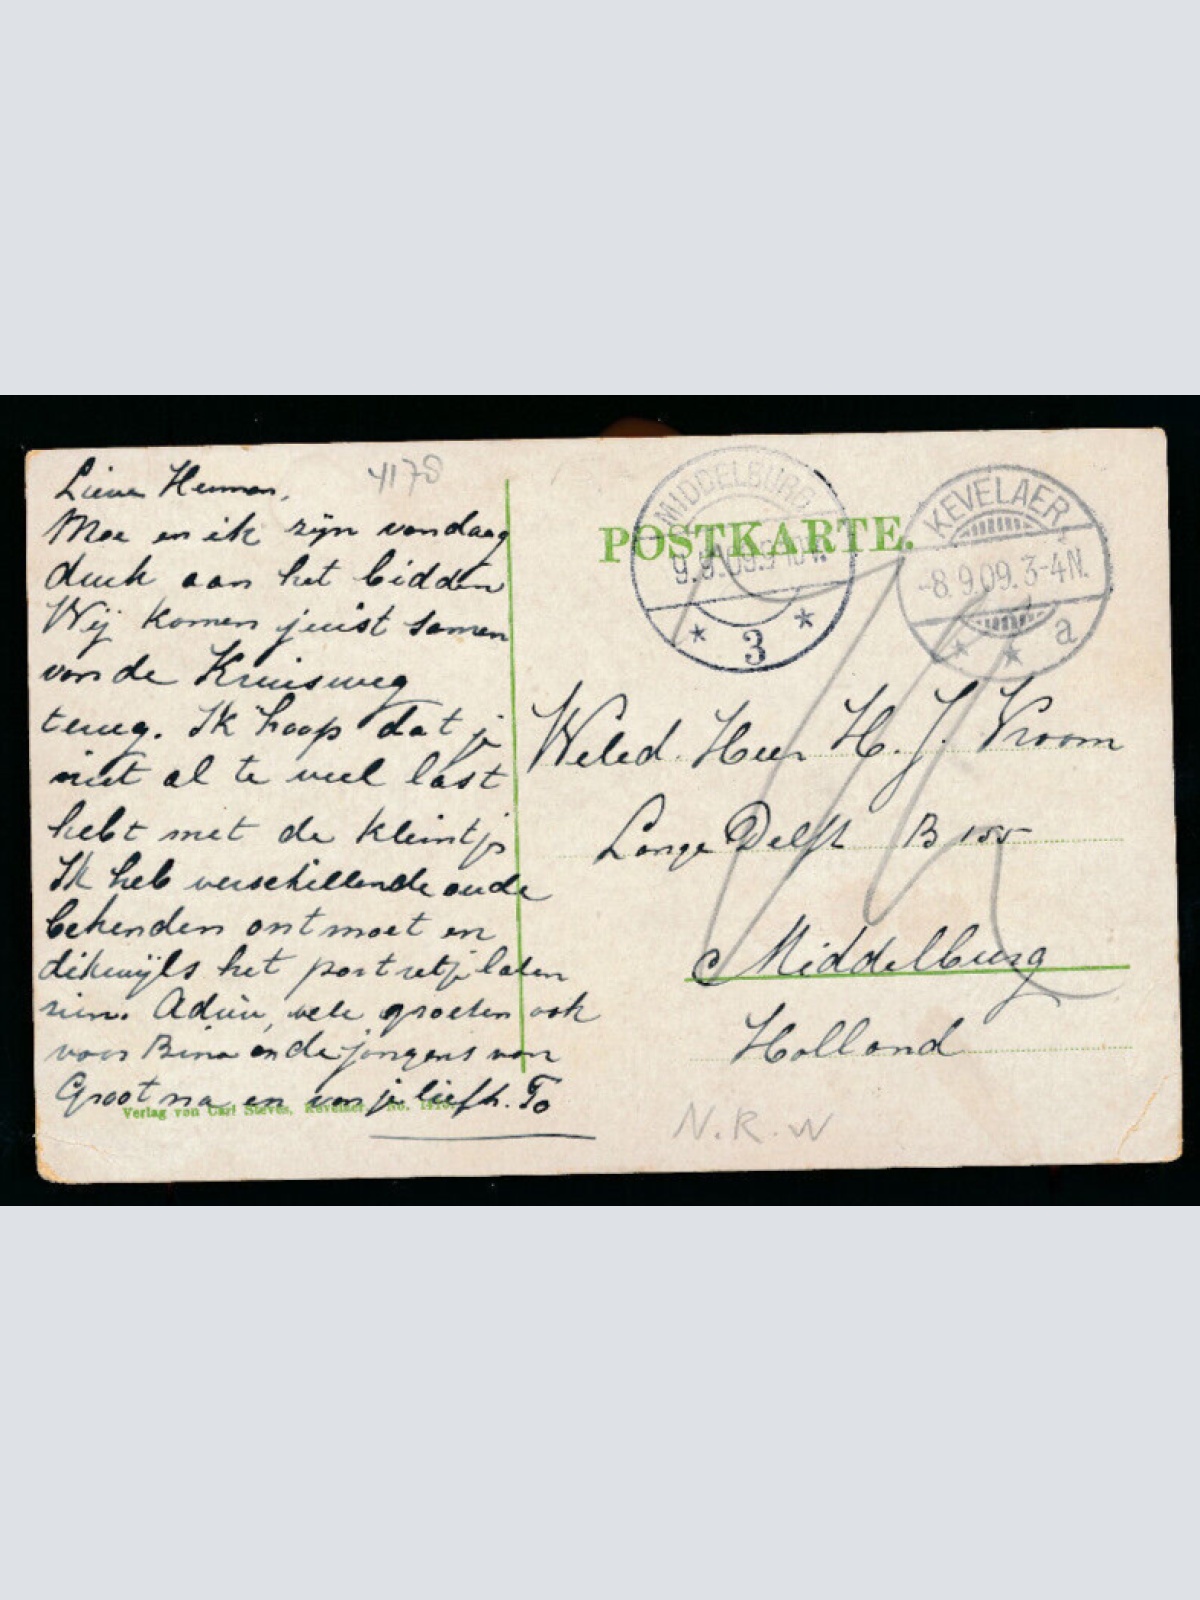 4178
Lieve Herman,
Moe en ik zijn vandaag
druk aan het bidden
Wij komen juist samen
van de Kruisweg
terug. Ik hoop dat je
niet al te veel last
hebt met de kleintjes
Ik heb verschillende oude
bekenden ontmoet en
dikwijls het portretje laten
zien. Adieu, vele groeten ook
voor Bina en de jongens van
Grootma en van je liefh. To
Verlag von Carl Steves, Kevelaer. No.
POSTKARTE.
MIDDELBURG
9.9.09.9-10V.
* 3 *
KEVELAER
-8.9.09.3-4N.
* * a
Weled. Heer H. J. Vroom
Lange Delft B 155
Middelburg
Holland
N.R.W